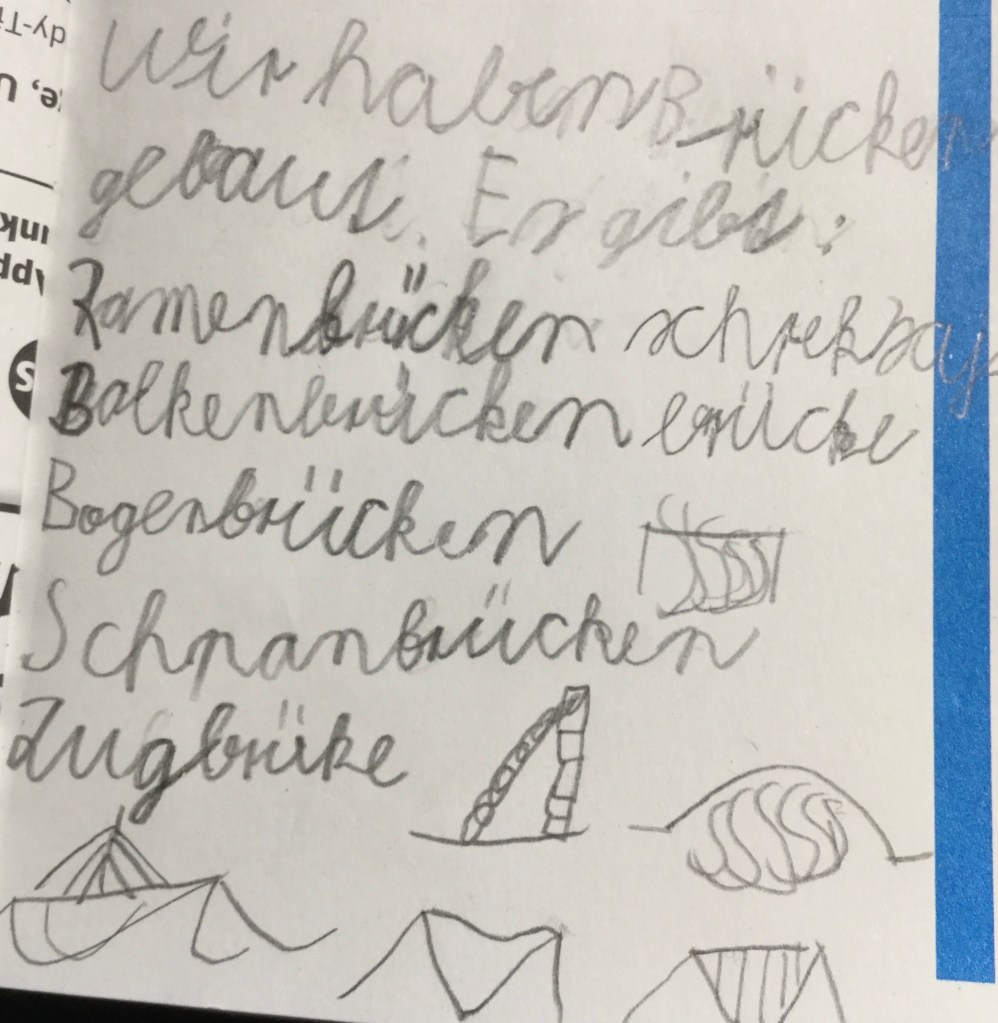 Wir haben Brücken
gebaut. Er gibt:
Ramenbrücken schrekzay
Balkenbrücken brücke
Bogenbrücken
Schpanbrücken
Zugbrüke